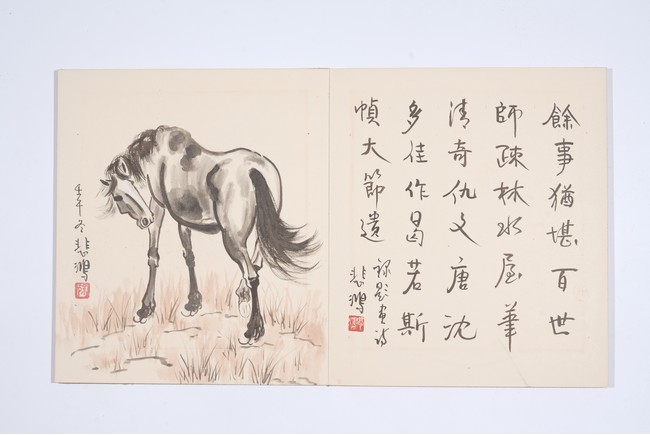 餘事猶堪百世
師疎林水屋筆
清奇仇文唐沈
多佳作曷若斯
幀大節遺
悲鴻
壬午冬
悲鴻